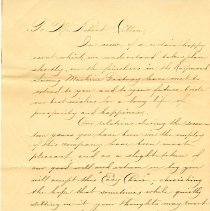 To Mr. Robert
In view of a certain happy
event which we understand takes place
shortly, we the finishers in the Raymond
Sewing Machine Factory have met to
extend to you and to your future bride
our best wishes for a long life of
prosperity and happiness.
Our relations during the seven
teen years you have been in the employ
of this company have been most
pleasant, and as a slight token of
our good will and esteem we beg you
will accept this Easy Chair, cherishing
the hope that sometimes while quietly
sitting in it your thoughts may revert